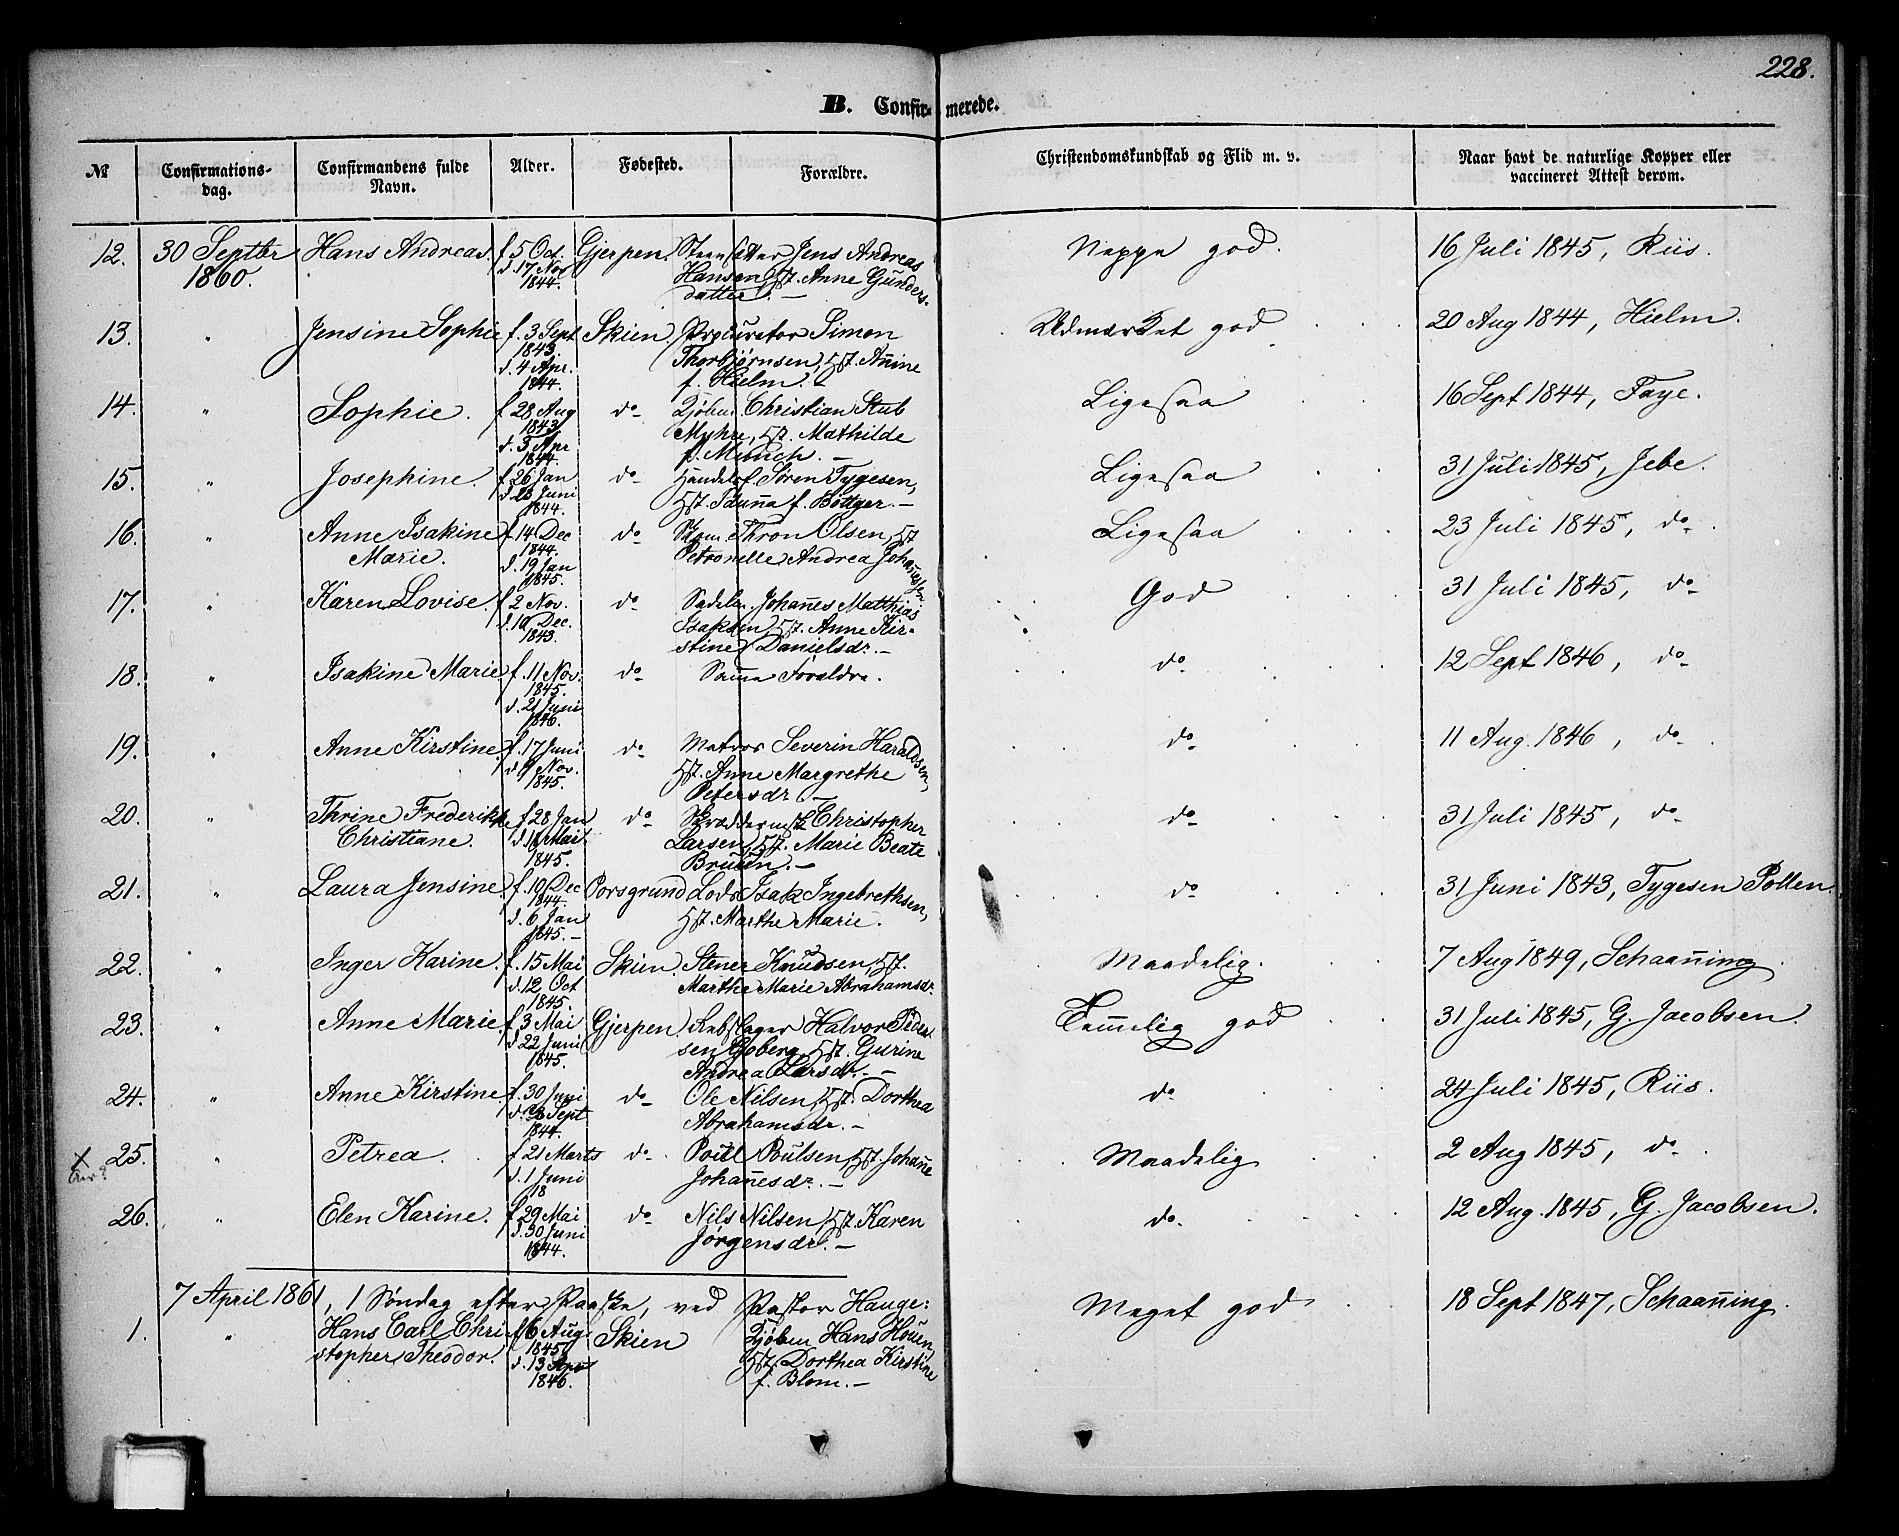 228.
B. Confirmerede.
№ Confirmations-dag. Confirmandens fulde Navn. Alder. Fødested. Forældre. Christendomskundskab og Flid m. v. Naar havt de naturlige Kopper eller vaccineret Attest derom.
12. 30 Septbr 1860. Hans Andreas. f. 5 Oct. d. 17 Nov 1844. Gjerpen. Jens Andreas Hansen, Hst. Anne Gundersdatter. — Neppe god. 16 Juli 1845, Riis.
13. " Jensine Sophie f. 3 Sept 1843. d. 4 Apr. 1844. Skien. Procurator Simon Thorbjørnsen, Hst. Anine f. Hielm. Udmærket god 20 Aug 1844, Hielm.
14. " Sophie. f 28 Aug 1843 d. 3 Apr 1844. do Kjøbm. Christian Stub Myhre, Hst. Mathilde f. Munch. — Ligesaa 16 Sept 1844, Faye.
15. " Josephine. f 26 Jan d. 23 Juni 1844. do Handelsf. Søren Tygesen, Hst. Idunna f. Bøttger. — Ligesaa 31 Juli 1845, Jebe.
16. " Anne Isakine Marie. f 14 Dec 1844. d. 19 Jan 1845. do Skom. Thron Olsen, Hst Petronelle Andrea Johannesen. Ligesaa 23 Juli 1845, do
17. " Karen Lovise. f 2 Nov. d. 10 Dec. 1843. do Sadelm. Johannes Matthias Isaksen, Hst. Anne Kirstine Danielsdr. — God 31 Juli 1845, do
18. " Isakine Marie f. 11 Nov. 1845. d. 21 Juni 1846. do Samme Forældre. do 12 Sept 1846, do
19. " Anne Kirstine. f. 17 Juni d. 9 Nov. 1845. do Matros Severin Haraldsen, Hst. Anne Margrethe Petersdr — do 11 Aug. 1846, do
20. " Thrine Frederikke Christiane. f 28 Jan d. Mai 1845. do Skræddermst Christopher Larsen, Hst. Marie Beate Bruun. — do 31 Juli 1845, do
21. " Laura Jensine f. 10 Dec 1844. d. 6 Jan 1845. — Porsgrund Lods Isak Ingebrethsen, Hst. Marthe Marie. do 31 Juni 1843, Tygesen Pollen
22. " Inger Karine. f. 15 Mai d. 12 Oct 1845. Skien. Stener Knudsen, Hst. Marthe Marie Abrahamsdr. Maadelig. 7 Aug 1849, Schaanning
23. " Anne Marie. f 3 Mai d. 22 Juni 1845. Gjerpen. Rebslager Halvor Pedersen Hst. Gurine Andrea Larsdr. — Temmelig god 31 Juli 1845, G. Jacobsen.
24. " Anne Kirstine f. 30 Juni d. Sept 1844. do Ole Nilsen, Hst. Dorthea Abrahamsdr. — do 24 Juli 1845, Riis.
25. " Petrea. f 21 Marts d. 1 Juni 18 do Poul Poulsen, Hst. Johanne Johannesdr. — Maadelig 2 Aug 1845, do
26. " Elen Karine. f. 29 Mai d. 30 Juni 1844. do Nils Nilsen, Hst. Karen Jørgensdr. — do. 12 Aug. 1845, G. Jacobsen.
7 April 1861, 1 Søndag efter Paaske, ved Pastor Hauge:
1. " Hans Carl Christopher Theodor. f 6 Aug 1845 d. 13 Apr 1846. Skien Kjøbm. Hans Houen, Hst. Dorthea Kirstine f. Blom. — Meget god 18 Sept 1847, Schaanning.